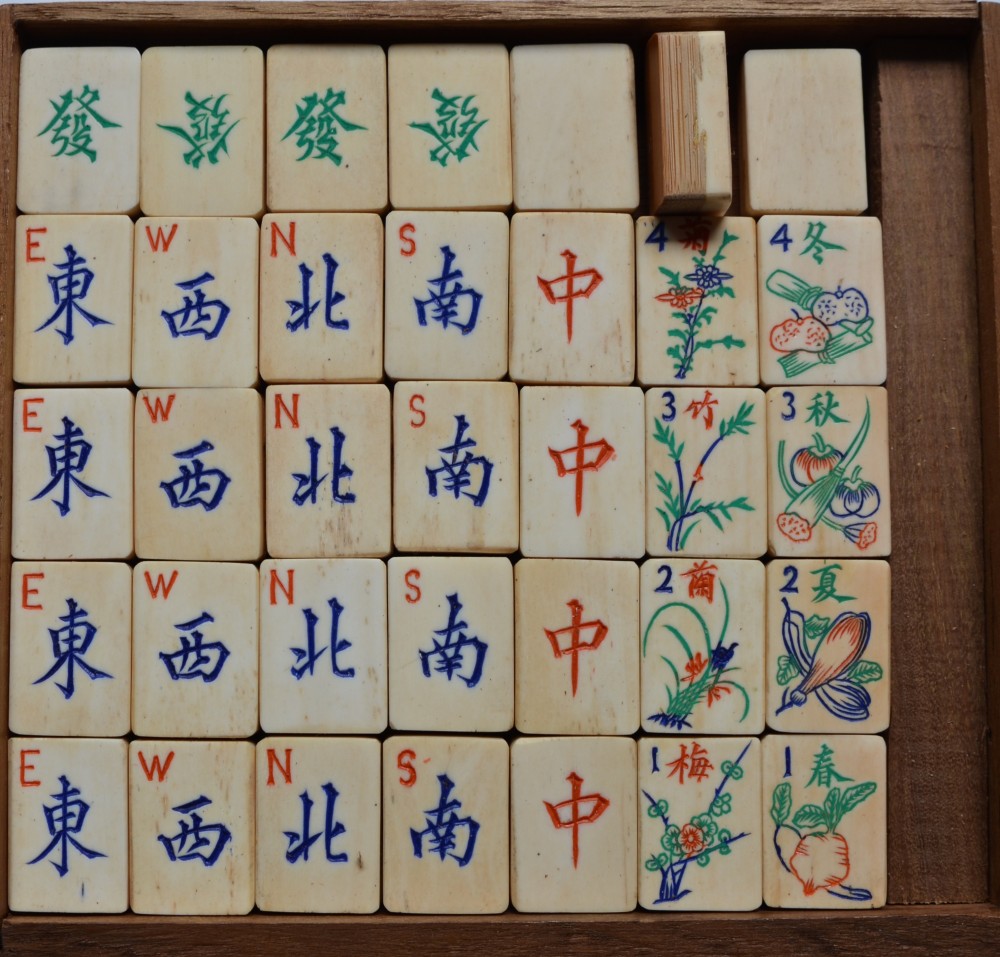 發 發 發 發
E W N S 4 菊 4 冬
東 西 北 南 中
E W N S 3 竹 3 秋
東 西 北 南 中
E W N S 2 蘭 2 夏
東 西 北 南 中
E W N S 1 梅 1 春
東 西 北 南 中